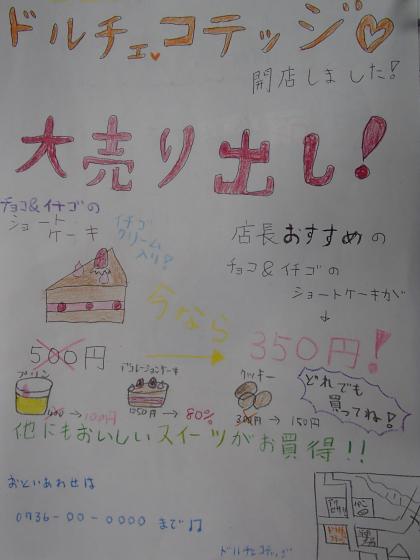 ドルチェ コテッジ
開店しました!
大売り出し!
チョコ&イチゴの
ショート
ケーキ
イチゴ
クリーム
入り!
店長おすすめの
チョコ&イチゴの
ショートケーキが
↓
今なら
500円 → 350円!
プリン
→ 100円
デコレーションケーキ
1050円 → 80%
クッキー
300円 → 150円
どれでも
買ってね!
他にもおいしいスイーツがお買得!!
おといあわせは
0736-00-0000 まで
ドルチェコテッジ